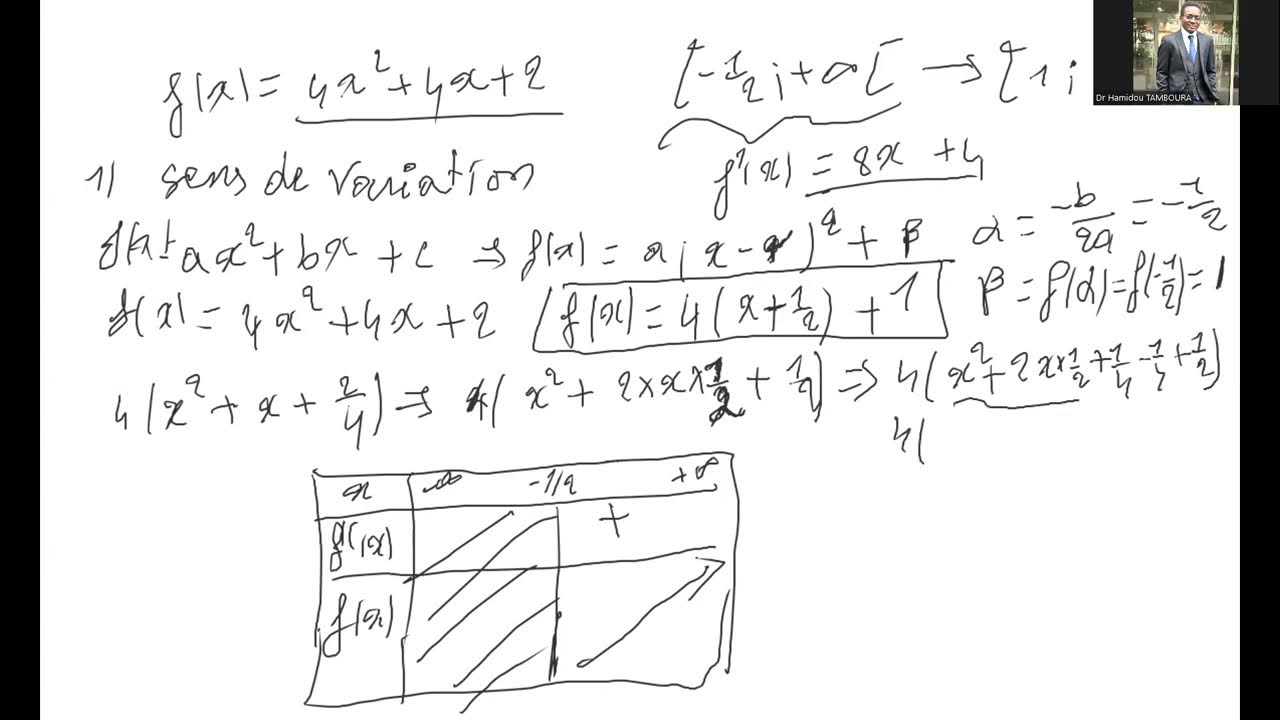 f(x) = 4x² + 4x + 2 [-1/2 ; +∞[ → [1 ;
Dr Hamidou TAMBOURA
1) sens de variation f'(x) = 8x + 4
f(x) = ax² + bx + c → f(x) = a(x - α)² + β α = -b/2a = -1/2
f(x) = 4x² + 4x + 2 f(x) = 4(x + 1/2) + 1 β = f(α) = f(-1/2) = 1
4(x² + x + 2/4) ⇒ 4(x² + 2×x×1/2 + 1/2) ⇒ 4(x² + 2x×1/2 + 1/4 - 1/4 + 1/2)
4(
x -∞ -1/2 +∞
f'(x) +
f(x)